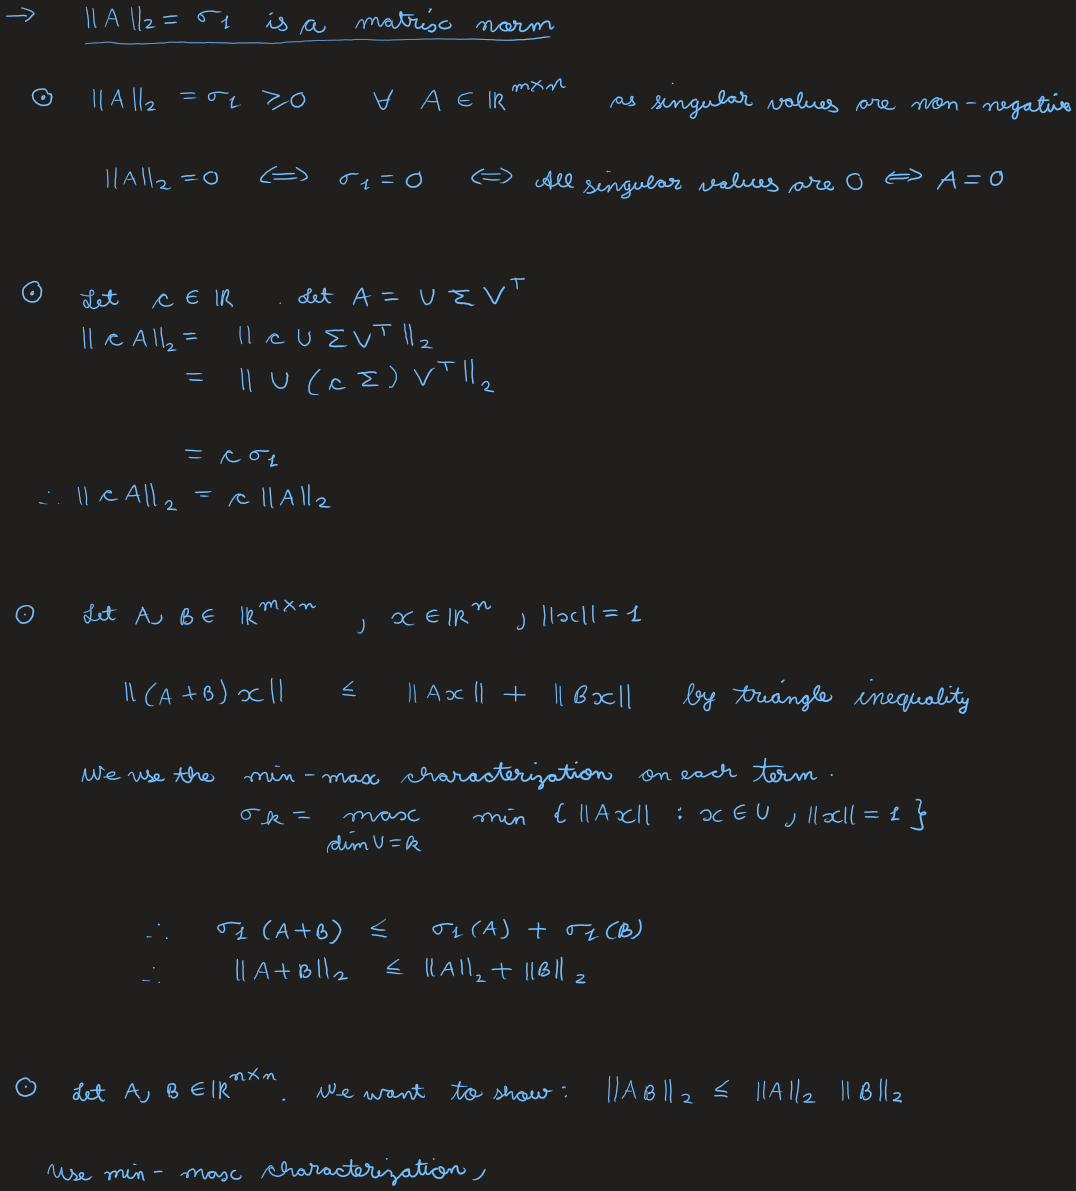 → ||A||₂ = σ₁ is a matrix norm
⊙ ||A||₂ = σ₁ ⩾ 0 ∀ A ∈ ℝ^{m×n} as singular values are non-negative
||A||₂ = 0 ⟺ σ₁ = 0 ⟺ All singular values are 0 ⟺ A = 0
⊙ Let c ∈ ℝ . Let A = U Σ V^T
||c A||₂ = || c U Σ V^T ||₂
= || U (c Σ) V^T ||₂
= c σ₁
∴ ||c A||₂ = c ||A||₂
⊙ Let A, B ∈ ℝ^{m×n} , x ∈ ℝ^n , ||x|| = 1
||(A+B) x|| ≤ ||Ax|| + ||Bx|| by triangle inequality
We use the min-max characterization on each term.
σ_k = max min { ||Ax|| : x ∈ U , ||x|| = 1 }
dim U = k
∴ σ₁ (A+B) ≤ σ₁ (A) + σ₁ (B)
∴ ||A+B||₂ ≤ ||A||₂ + ||B||₂
⊙ Let A, B ∈ ℝ^{n×n}. We want to show: ||AB||₂ ≤ ||A||₂ ||B||₂
Use min-max characterization,